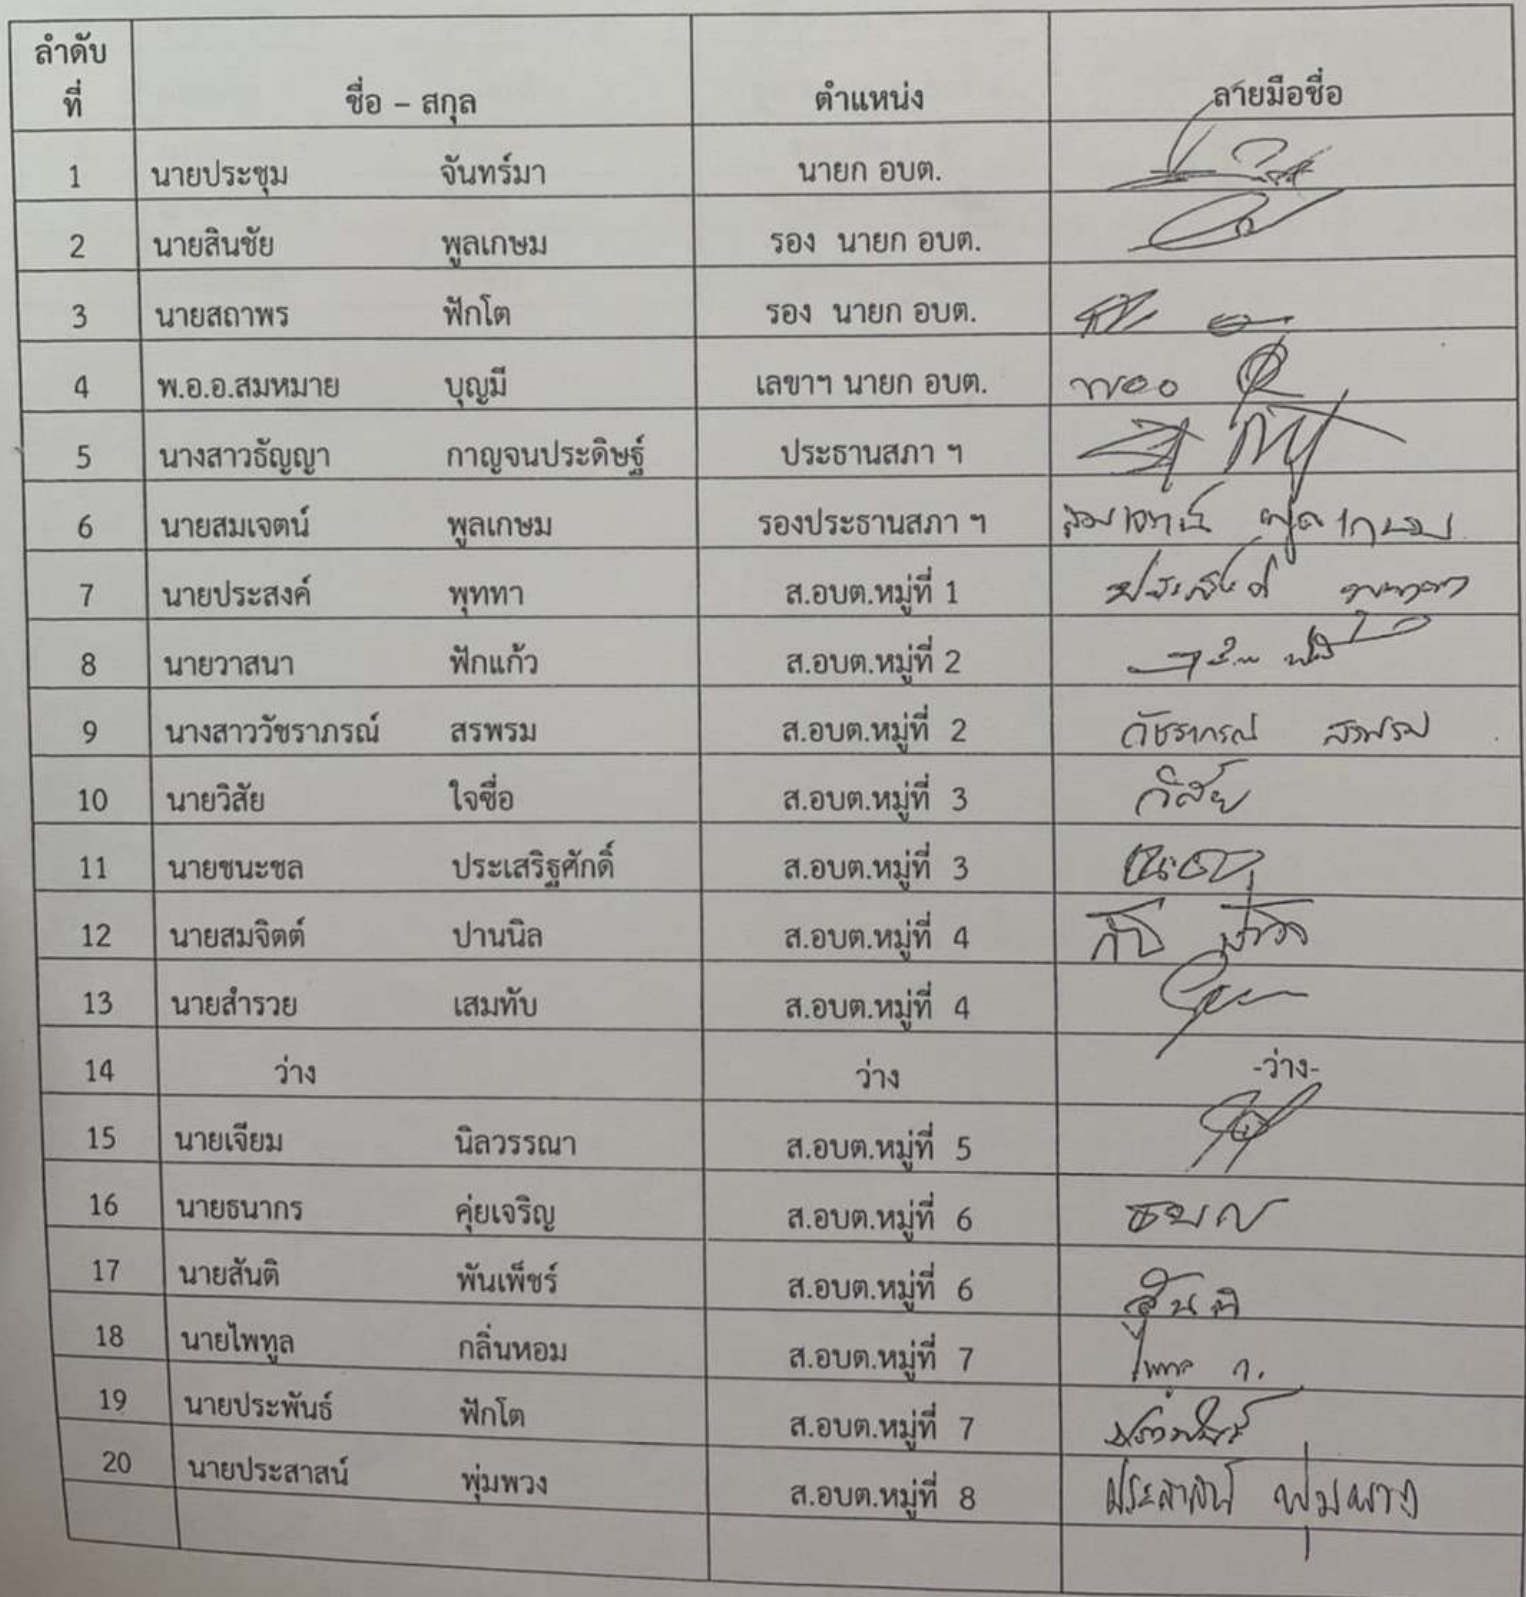 ลำดับ
ที่ ชื่อ – สกุล ตำแหน่ง ลายมือชื่อ
1 นายประชุม จันทร์มา นายก อบต.
2 นายสินชัย พูลเกษม รอง นายก อบต.
3 นายสถาพร ฟักโต รอง นายก อบต.
4 พ.อ.อ.สมหมาย บุญมี เลขาฯ นายก อบต. พออ
5 นางสาวธัญญา กาญจนประดิษฐ์ ประธานสภา ฯ
6 นายสมเจตน์ พูลเกษม รองประธานสภา ฯ สมเจตน์ พูลเกษม
7 นายประสงค์ พุททา ส.อบต.หมู่ที่ 1 ประสงค์ พุททา
8 นายวาสนา ฟักแก้ว ส.อบต.หมู่ที่ 2
9 นางสาววัชราภรณ์ สรพรม ส.อบต.หมู่ที่ 2 วัชราภรณ์ สรพรม
10 นายวิสัย ใจซื่อ ส.อบต.หมู่ที่ 3 วิสัย
11 นายชนะชล ประเสริฐศักดิ์ ส.อบต.หมู่ที่ 3
12 นายสมจิตต์ ปานนิล ส.อบต.หมู่ที่ 4
13 นายสำรวย เสมทับ ส.อบต.หมู่ที่ 4
14 ว่าง ว่าง -ว่าง-
15 นายเจียม นิลวรรณา ส.อบต.หมู่ที่ 5
16 นายธนากร คุ่ยเจริญ ส.อบต.หมู่ที่ 6
17 นายสันติ พันเพ็ชร์ ส.อบต.หมู่ที่ 6 สันติ
18 นายไพทูล กลิ่นหอม ส.อบต.หมู่ที่ 7 ไพทูล ก.
19 นายประพันธ์ ฟักโต ส.อบต.หมู่ที่ 7 ประพันธ์
20 นายประสาสน์ พุ่มพวง ส.อบต.หมู่ที่ 8 ประสาสน์ พุ่มพวง